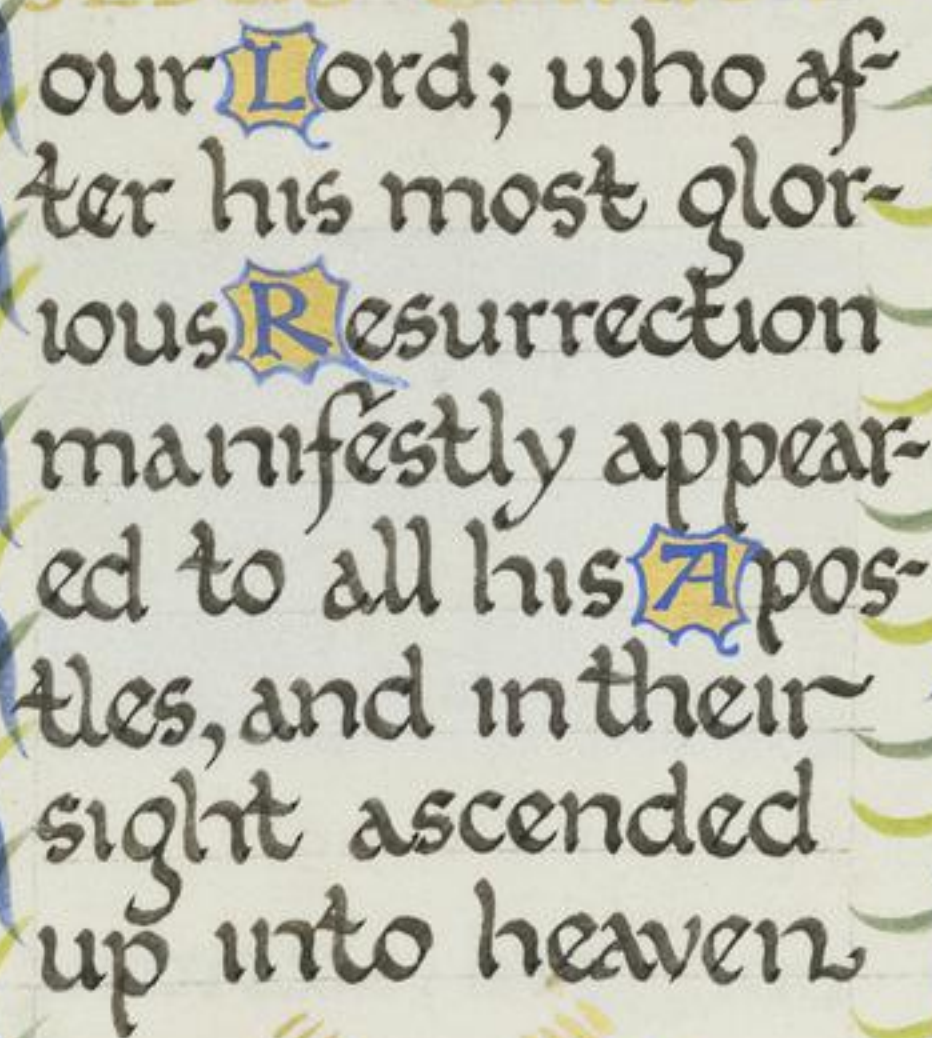 our Lord; who af-
ter his most glor-
ious Resurrection
manifestly appear-
ed to all his Apos-
tles, and in their
sight ascended
up into heaven